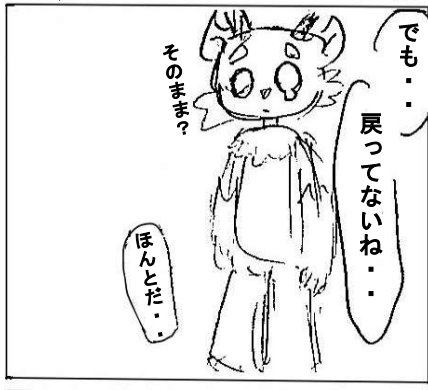 でも・・
戻ってないね・・
そのまま？
ほんとだ・・